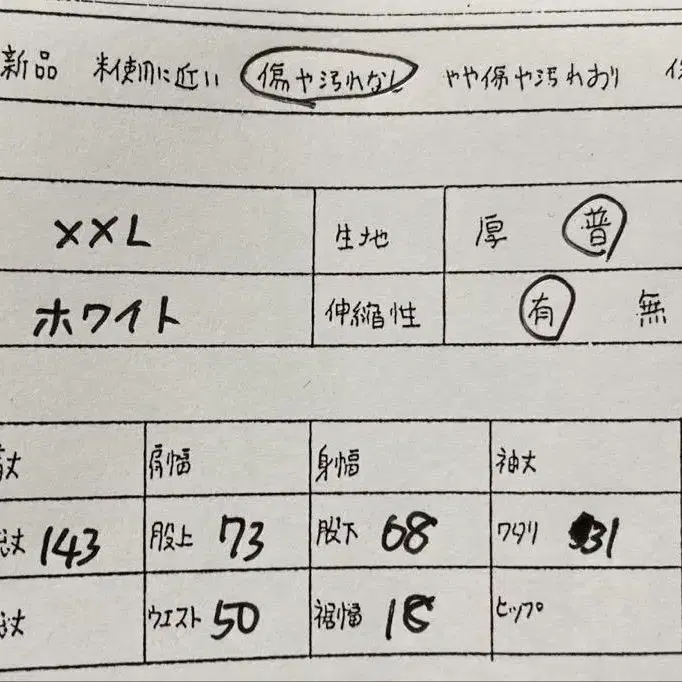 新品 未使用に近い 傷や汚れなし やや傷や汚れあり
XXL 生地 厚 普
ホワイト 伸縮性 有 無
丈 肩幅 身幅 袖丈
総丈 143 股上 73 股下 68 ワタリ 31
丈 ウエスト 50 裾幅 18 ヒップ